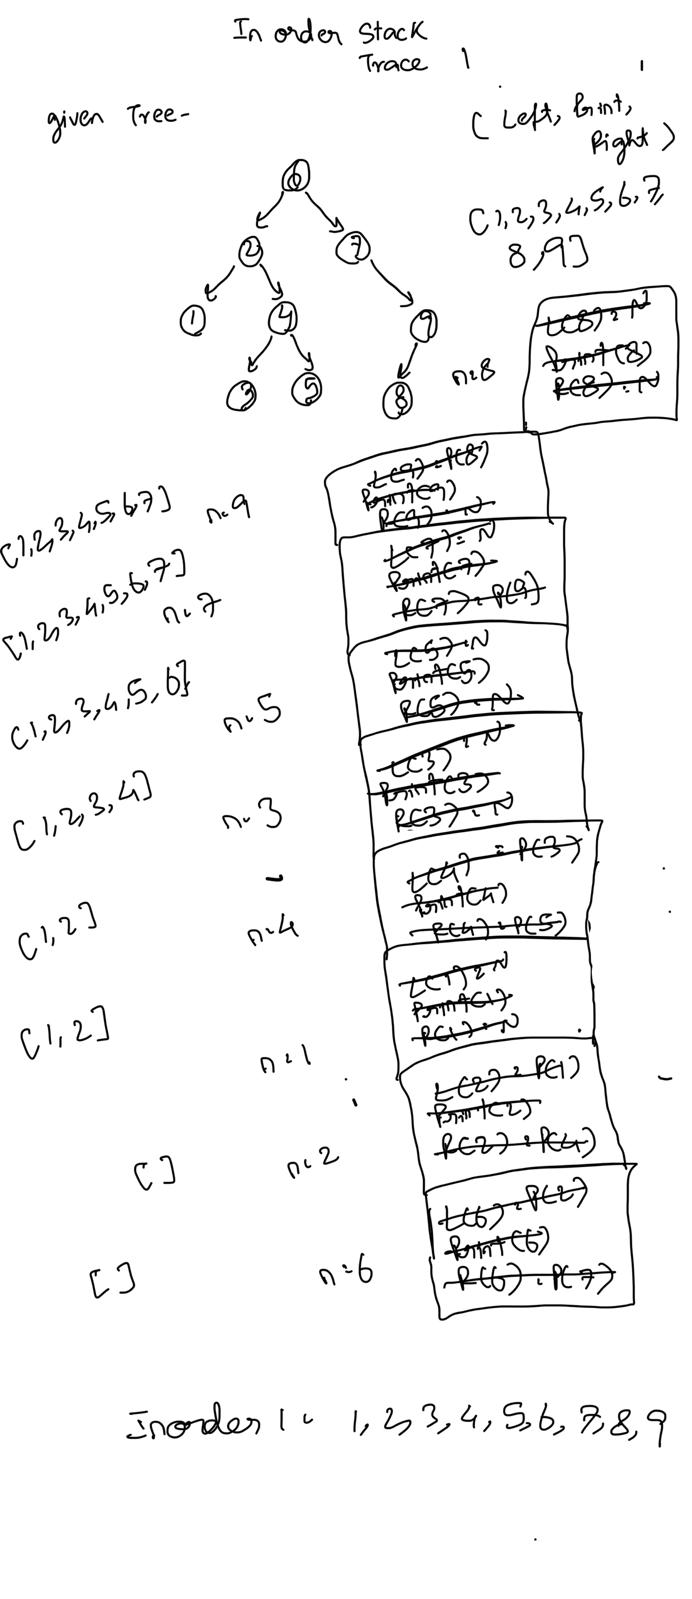 In order Stack
Trace 1
given Tree-
( Left, Print,
Right )
[1,2,3,4,5,6,7,
8,9]
6
2
7
1
4
9
3
5
8
n=8
L(8)=N
Print(8)
R(8)=N
[1,2,3,4,5,6,7]
n=9
L(9)=P(8)
Print(9)
R(9)=N
[1,2,3,4,5,6,7]
n=7
L(7)=N
Print(7)
R(7)=P(9)
[1,2,3,4,5,6]
n=5
L(5)=N
Print(5)
R(5)=N
[1,2,3,4]
n=3
L(3)=N
Print(3)
R(3)=N
[1,2]
n=4
L(4)=P(3)
Print(4)
R(4)=P(5)
[1,2]
n=1
L(1)=N
Print(1)
R(1)=N
[]
n=2
L(2)=P(1)
Print(2)
R(2)=P(4)
[]
n=6
L(6)=P(2)
Print(6)
R(6)=P(7)
Inorder 1= 1,2,3,4,5,6,7,8,9